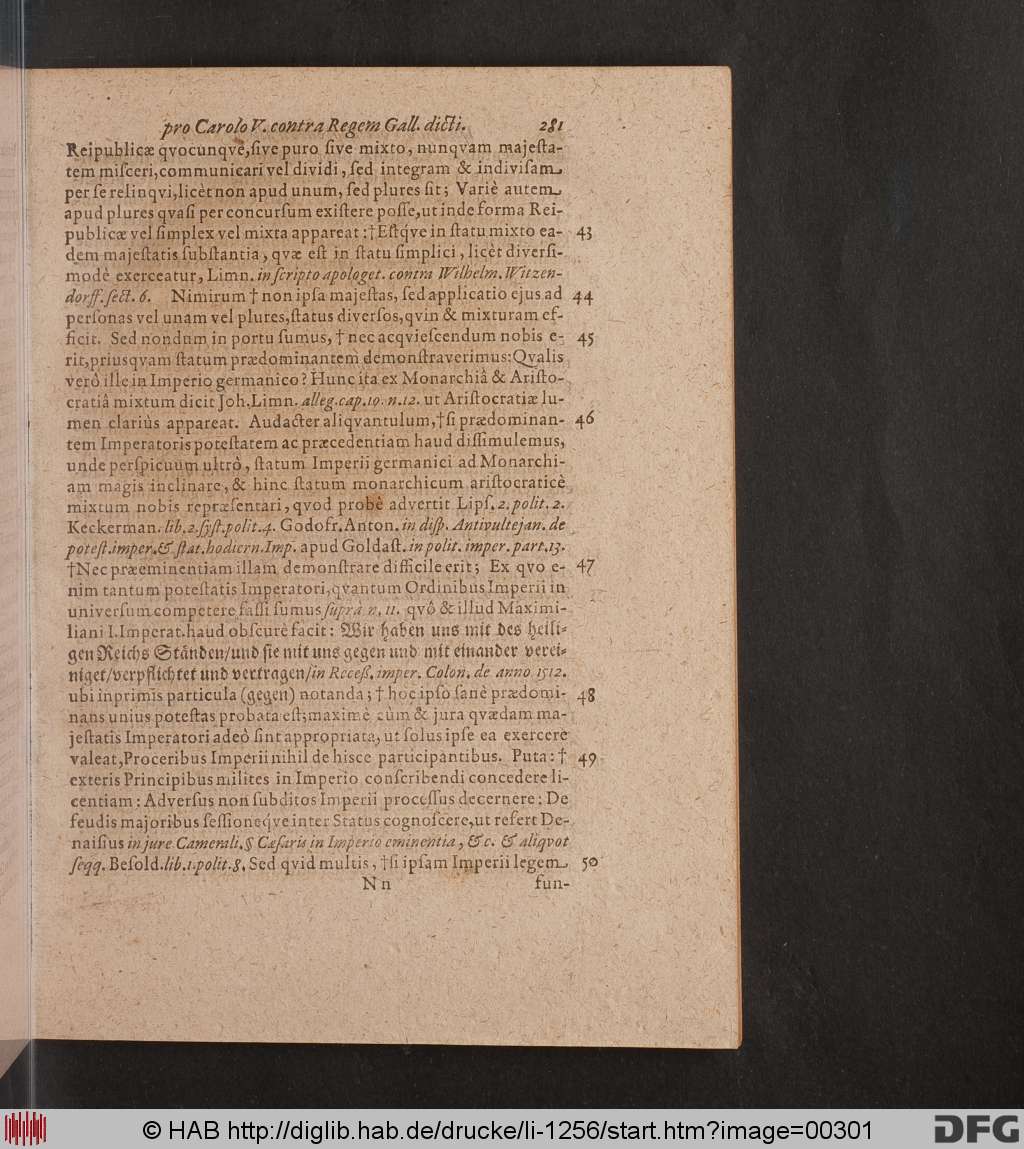 pro Carolo V. contra Regem Gall. dicti. 281
Reipublicæ qvocunqve, ſive puro ſive mixto, nunqvam majeſta-
tem miſceri, communicari vel dividi, ſed integram & indiviſam
per ſe relinqvi, licèt non apud unum, ſed plures ſit; Variè autem
apud plures qvaſi per concurſum exiſtere poſſe, ut inde forma Rei-
publicæ vel ſimplex vel mixta appareat: †Eſtq́ve in ſtatu mixto ea- 43
dem majeſtatis ſubſtantia, qvæ eſt in ſtatu ſimplici, licèt diverſi-
modè exerceatur, Limn. in ſcripto apologet. contra Wilhelm. Witzen-
dorff. ſect. 6. Nimirum † non ipſa majeſtas, ſed applicatio ejus ad 44
perſonas vel unam vel plures, ſtatus diverſos, qvin & mixturam ef-
ficit. Sed nondum in portu ſumus, † nec acqvieſcendum nobis e- 45
rit, priusqvam ſtatum prædominantem demonſtraverimus: Qvalis
verò ille in Imperio germanico? Hunc ita ex Monarchiâ & Ariſto-
cratiâ mixtum dicit Joh. Limn. alleg. cap. 10. n. 12. ut Ariſtocratiæ lu-
men clariùs appareat. Audacter aliqvantulum, † ſi prædominan- 46
tem Imperatoris poteſtatem ac præcedentiam haud diſſimulemus,
unde perſpicuum ultrò, ſtatum Imperii germanici ad Monarchi-
am magis inclinare, & hinc ſtatum monarchicum ariſtocraticè
mixtum nobis repræſentari, qvod probè advertit Lipſ. 2. polit. 2.
Keckerman. lib. 2. ſyſt. polit. 4. Godofr. Anton. in diſp. Antivultejan. de
poteſt. imper. & ſtat. hodiern. Imp. apud Goldaſt. in polit. imper. part. 13.
†Nec præeminentiam illam demonſtrare difficile erit; Ex qvo e- 47
nim tantum poteſtatis Imperatori, qvantum Ordinibus Imperii in
univerſum competere faſſi ſumus ſuprà n. 11. qvô & illud Maximi-
liani I. Imperat. haud obſcurè facit: Wir haben uns mit des heili-
gen Reichs Ständen/und ſie mit uns gegen und mit einander verei-
niget/verpflichtet und vertragen/in Receß. imper. Colon. de anno 1512.
ubi inprimis particula (gegen) notanda; † hoc ipſo ſanè prædomi- 48
nans unius poteſtas probata eſt; maximè cùm & jura qvædam ma-
jeſtatis Imperatori adeò ſint appropriata, ut ſolus ipſe ea exercere
valeat, Proceribus Imperii nihil de hisce participantibus. Puta: † 49
exteris Principibus milites in Imperio conſcribendi concedere li-
centiam: Adverſus non ſubditos Imperii proceſſus decernere: De
feudis majoribus ſeſſioneqve inter Status cognoſcere, ut refert De-
naiſius in jure Camerali. § Cæſaris in Imperio eminentia, &c. & aliqvot
ſeqq. Beſold. lib. 1. polit. 8. Sed qvid multis, † ſi ipſam Imperii legem 50
Nn fun-
© HAB http://diglib.hab.de/drucke/li-1256/start.htm?image=00301
DFG